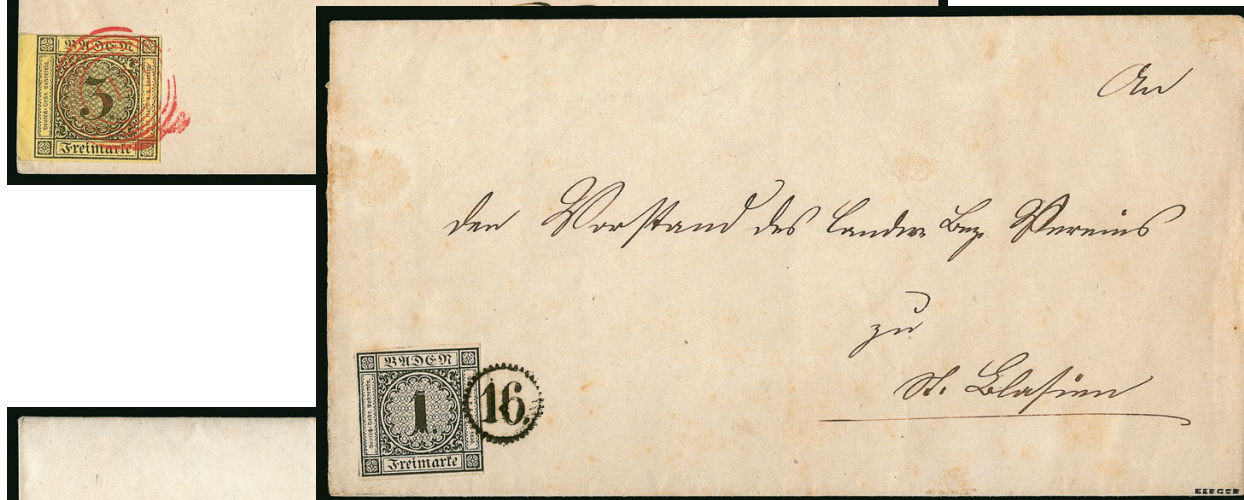 BADEN
3.
Freimarke
An
den Vorstand des landw. Bez. Vereins
zu
St. Blasien
BADEN
1.
Freimarke
16.